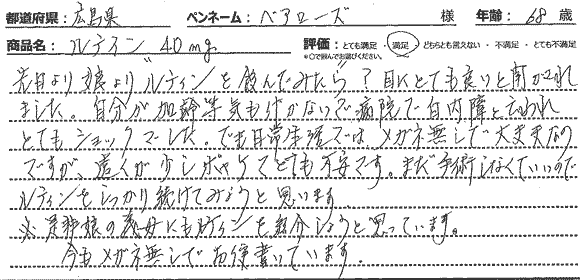 都道府県：広島県 ペンネーム：ベアローズ 様 年齢：68歳
商品名：ルテイン 40mg 評価：とても満足・満足・どちらとも言えない・不満足・とても不満足
※○で囲んでお選びください。
先日より娘より"ルテインを飲んでみたら？目にとても良いと聞かされ
ました。自分が加齢等気も付かないで病院で白内障と言われ
とてもショックでした。でも日常生活では、メガネ無しで大丈夫なの
ですが、遠くが少しボヤケてとても不安です。まだ手術しなくていいので
ルテインをしっかり続けてみようと思います
※是非娘の義母にもルテインを紹介しようと思っています。
今もメガネ無しでお便書いています。